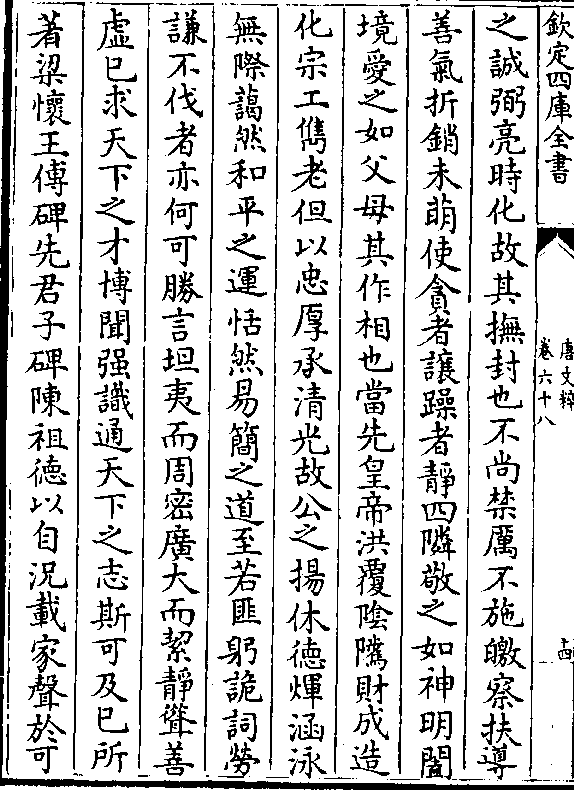 欽定四庫全書
唐文粹
卷六十八
十四
之誠弼亮時化故其撫封也不尚禁厲不施皦察扶導
善氣折銷未萌使貪者讓躁者靜四隣敬之如神明闔
境愛之如父母其作相也當先皇帝洪覆隂隲財成造
化宗工雋老但以忠厚承清光故公之揚休德煇涵泳
無際藹然和平之運恬然易簡之道至若匪躬詭詞勞
謙不伐者亦何可勝言坦夷而周密廣大而絜靜聳善
虛已求天下之才博聞强識通天下之志斯可及已所
著梁懷王傅碑先君子碑陳祖德以自況載家聲於可